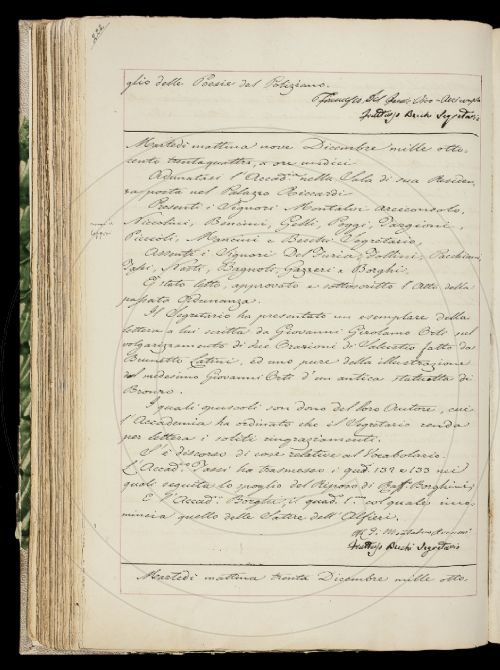 glio delle Poesie del Poliziano.
Fruttuoso Becchi Segretario
Martedì mattina nove Dicembre mille otto-
cento trentaquattro, a ore undici
Adunatasi l'Accad.ª nella Sala di sua Residen-
za posta nel Palazzo Riccardi
Presenti i Signori Montalvi Arciconsolo,
Niccolini, Bencini, Gelli, Poggi, Targioni,
Piccioli, Mancini e Becchi Segretario,
Assenti i Signori Del Furia, Follini, Pacchiani,
Tassi, Nesti, Bagnoli, Gazzeri e Borghi.
È stato letto, approvato e sottoscritto l'Atto della
passata Adunanza.
Il Segretario ha presentato un esemplare della
lettera a lui scritta da Giovanni Girolamo Orti sul
volgarizzamento di due Orazioni di fatto da
Brunetto Latini, ed uno pure della illustrazione
del medesimo Giovanni Orti d'un antica statuetta di
Bronzo.
I quali opuscoli son dono del loro Autore, cui
l'Accademia ha ordinato che il Segretario renda
per lettera i soliti ringraziamenti.
S'è discorso di cose relative al Vocabolario.
L'Accad.co Tassi ha trasmesso i quad. 132 e 133 nei
quali seguita lo spoglio del Riposo di Raff. Borghini;
E l'Accad.co Borghi, il quad. 1.º col quale inco-
mincia quello delle Satire dell'Alfieri.
Fruttuoso Becchi Segretario
Martedì mattina trenta Dicembre mille otto-